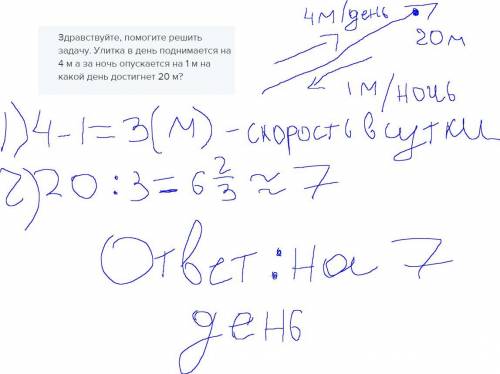 Здравствуйте, помогите решить
задачу. Улитка в день поднимается на
4 м а за ночь опускается на 1 м на
какой день достигнет 20 м?
4м/день
20м
1м/ночь
1) 4-1=3(м) - скорость в сутки
2) 20:3=6 2/3 ≈ 7
Ответ: на 7
день